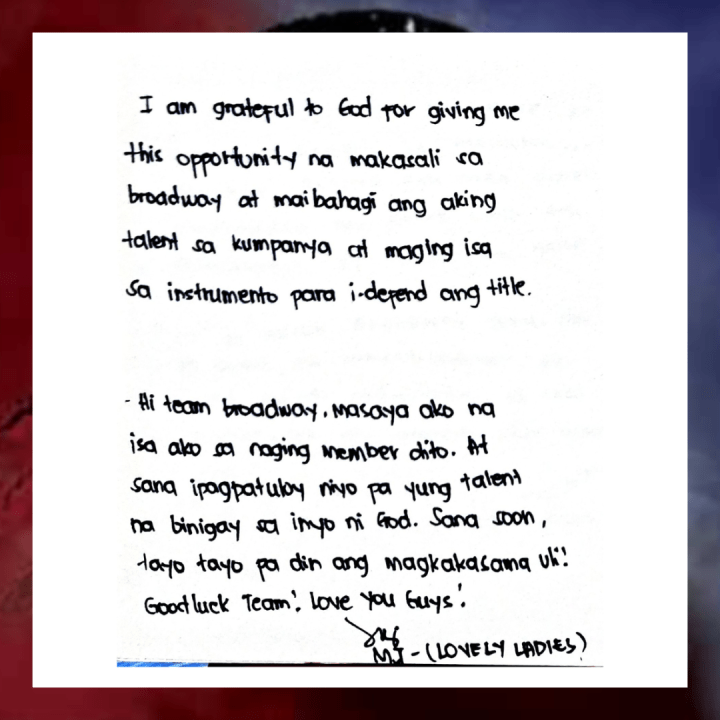 I am grateful to God for giving me
this opportunity na makasali sa
broadway at maibahagi ang aking
talent sa kumpanya at maging isa
sa instrumento para i-depend ang title.
- Hi team broadway, Masaya ako na
isa ako sa naging member dito. At
sana ipagpatuloy niyo pa yung talent
na binigay sa inyo ni God. Sana soon,
tayo tayo pa din ang magkakasama uli!
Good luck Team! Love You Guys!
MJ - (LOVELY LADIES)